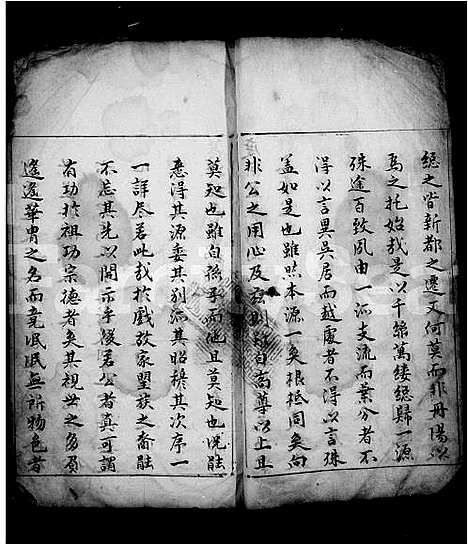 總之皆新都之遷又何莫而非丹陽以
為之托始哉是以千條萬縷總歸一源
殊途百致夙由一派支流而葉分者不
得以言異吳居而越處者不得以言殊
蓋如是也雖然本源一矣根柢同矣向
非公之用心及玆則雖自高尊以上且
莫知也雖自孫子而他且莫知也況能
悉得其源委其別派其昭穆其次序一
一詳尽若此哉於戲故家望族之裔能
不忘其先以開示乎後若公者真可謂
有功於祖功宗德者矣其視世之多負
遙遙華冑之名而竟泯泯無所物色者